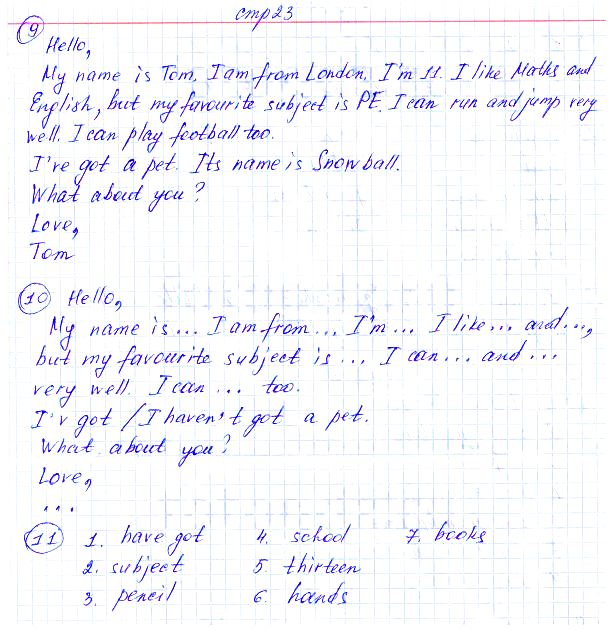 стр 23
9
Hello,
My name is Tom. I am from London. I'm 11. I like Maths and
English, but my favourite subject is PE. I can run and jump very
well. I can play football too.
I've got a pet. Its name is Snowball.
What about you?
Love,
Tom
10 Hello,
My name is... I am from... I'm... I like... and...,
but my favourite subject is... I can... and...
very well. I can... too.
I'v got / I haven't got a pet.
What about you?
Love,
...
11 1. have got 4. school 7. books
2. subject 5 thirteen
3. pencil 6. hands